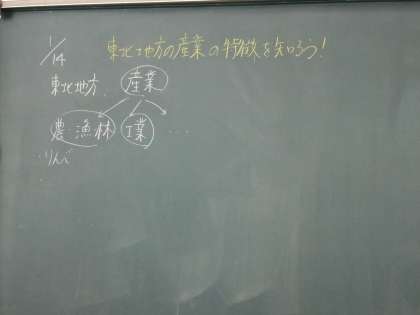 1/14
東北地方の産業の特徴を知ろう!
東北地方 産業
農・漁林 工業 ...
・りんご